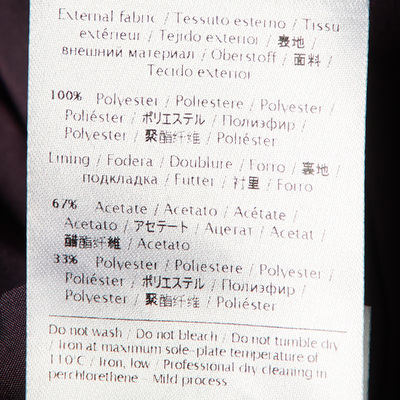 External fabric / Tessuto esterno / Tissu
extérieur / Tejido exterior / 表地 /
внешний материал / Oberstoff / 面料 /
Tecido exterior
100% Polyester / Poliestere / Polyester /
Poliéster / ポリエステル / Полиэфир /
Polyester / 聚酯纤维 / Poliéster
Lining / Fodera / Doublure / Forro / 裏地 /
подкладка / Futter / 衬里 / Forro
67% Acetate / Acetato / Acétate /
Acetato / アセテート / Ацетат / Acetat /
醋酯纤维 / Acetato
33% Polyester / Poliestere / Polyester /
Poliéster / ポリエステル / Полиэфир /
Polyester / 聚酯纤维 / Poliéster
Do not wash / Do not bleach / Do not tumble dry
/ Iron at maximum sole-plate temperature of
110°C / Iron, low / Professional dry cleaning in
perchlorethene – Mild process